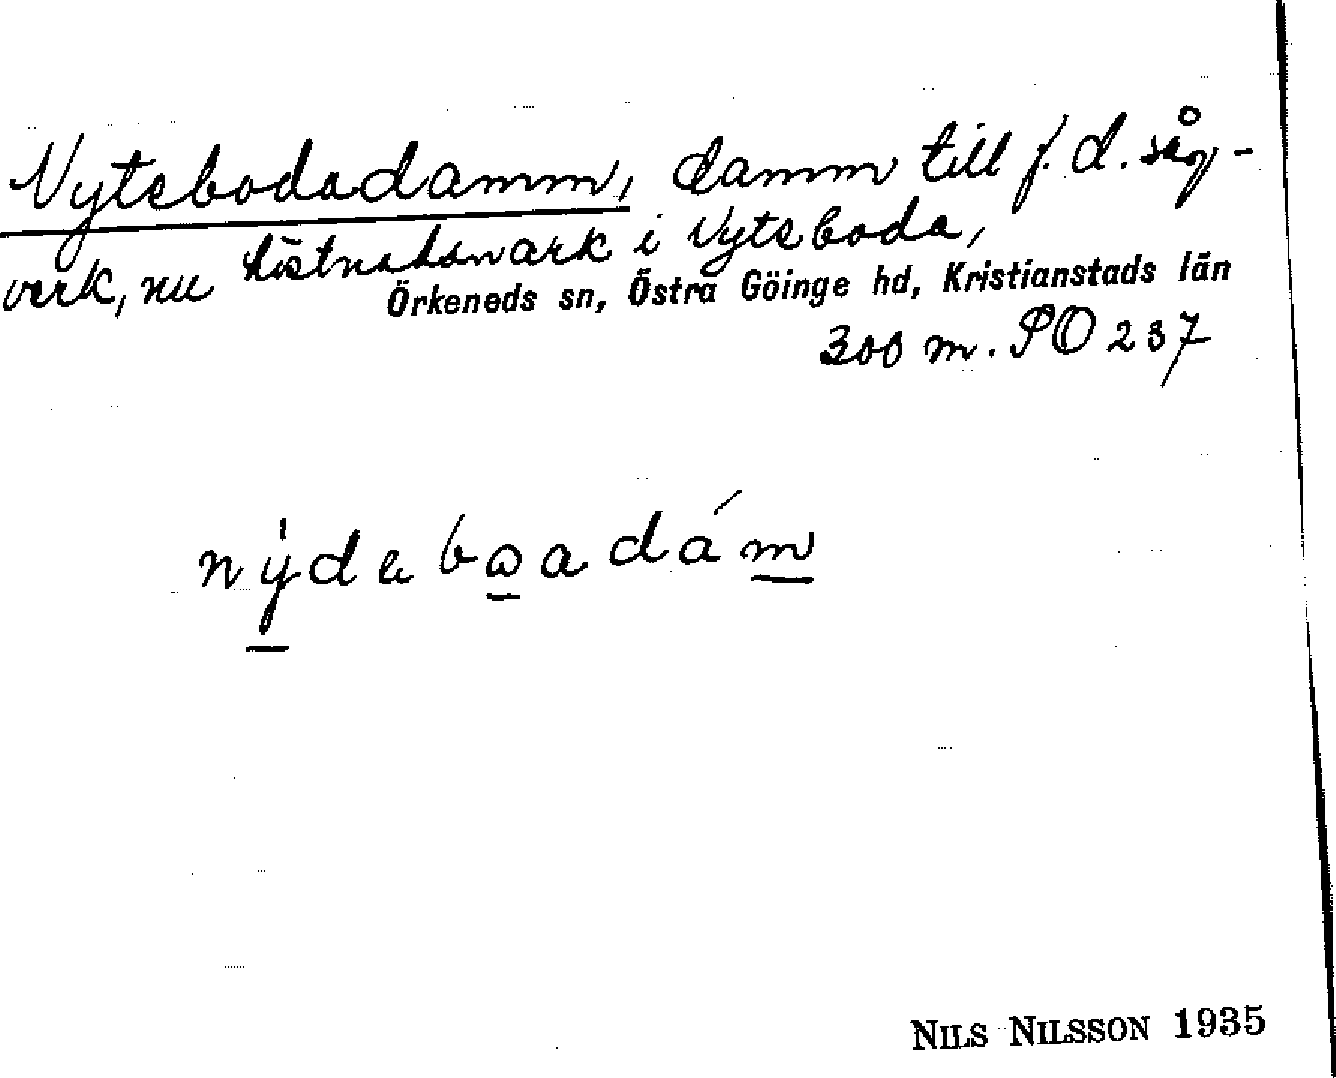 Nytebodadamm, damm till f. d. såg-
verk, nu i Nyteboda,
Örkeneds sn, Östra Göinge hd, Kristianstads län
300 m. PO 237
nýdeboadám
NILS NILSSON 1935